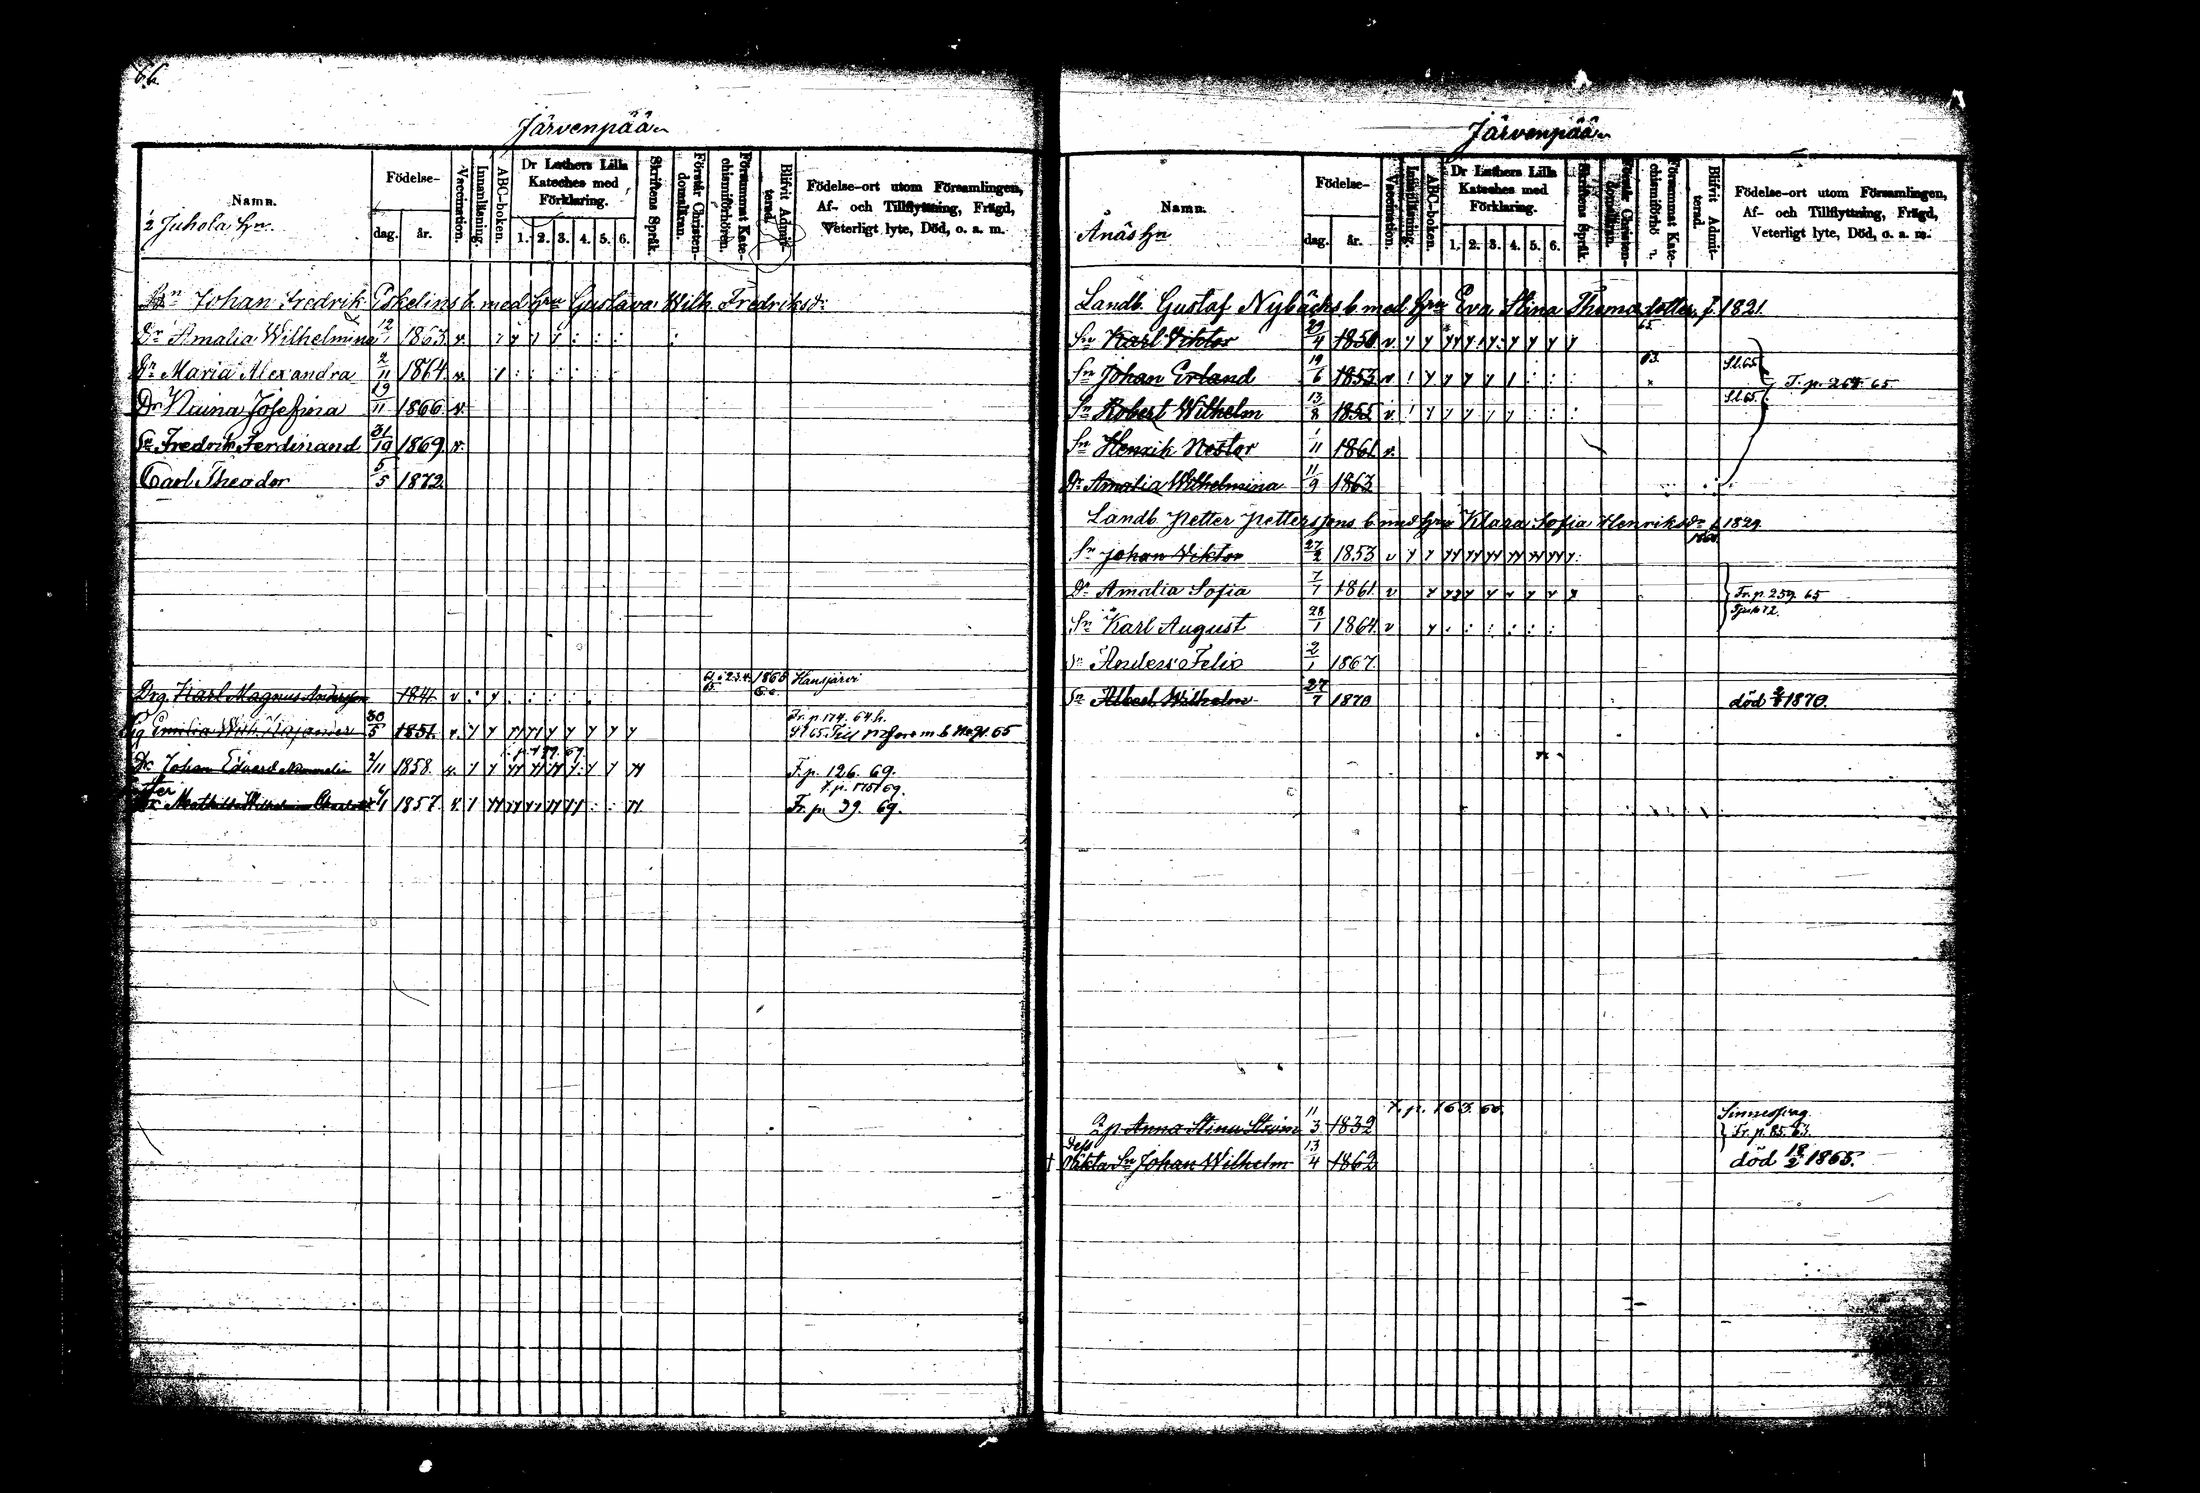 66
Järvenpää
Namn.
½ Juhola Hn.
Födelse-
dag. år.
Vaccination.
Innanläsning.
ABC-boken.
Dr Luthers Lilla Kateches med Förklaring.
1. 2. 3. 4. 5. 6.
Skriftens Språk.
Förstår Christendomsläran.
Försummat Katechismiförhören.
Blifvit Admitterad.
Födelse-ort utom Församlingen,
Af- och Tillflyttning, Frägd,
Veterligt lyte, Död, o. a. m.
Johan Fredrik Eskelins b. med Hru Gustava Wilh. Fredriksdr
Dr Amalia Wilhelmina 12/1 1863. v.
Dr Maria Alexandra 2/11 1864. v.
Dr Naima Josefina 19/11 1866 v.
Sn Fredrik Ferdinand 31/10 1869. v.
Carl Theodor 5/5 1872.
Drg. Karl Magnus Andersson 1844 v 1865 Hausjärvi
Emilia Wilh. 30/5 1851. v. Fr. p. 174. 64
Dr. Johan Edvard 2/11 1858. v. F. p. 126. 69.
1857. v. Fr. p. 29. 69.
Järvenpää
Namn.
Ånäs Hn
Födelse-
dag. år.
Vaccination.
Innanläsning.
ABC-boken.
Dr Luthers Lilla Kateches med Förklaring.
1. 2. 3. 4. 5. 6.
Skriftens Språk.
Förstår Christendomsläran.
Blifvit Admitterad.
Födelse-ort utom Församlingen,
Af- och Tillflyttning, Frägd,
Veterligt lyte, Död, o. a. m.
Landb. Gustaf Nybäcks b. med Hru Eva Stina Thomasdotter, f. 1821.
Sn Karl Viktor 29/4 1850. v 65
Sn Johan Erland 19/6 1853 v 63. Sl. 65 T. p. 264. 65
Sn Robert Wilhelm 13/8 1855 v Sl. 65
Sn Henrik Nestor 1/11 1861. v.
Dr Amalia Wilhelmina 11/9 1863
Landb. Petter Petterssons b. med Hru Klara Sofia Henriksdr f. 1829.
Sn Johan Viktor 27/2 1853 v
Dr Amalia Sofia 7/7 1861. v Fr. p. 259. 65
Sn Karl August 28/1 1864. v
Sn Anders Felix 2/1 1867.
Sn Albert Wilhelm 27/7 1870 död 1870.
Anna Stina 11/3 1832 T. p. 163. Fr. p. 85. 63.
Dess
oäkta Sn Johan Wilhelm 13/4 1862 död 1865.